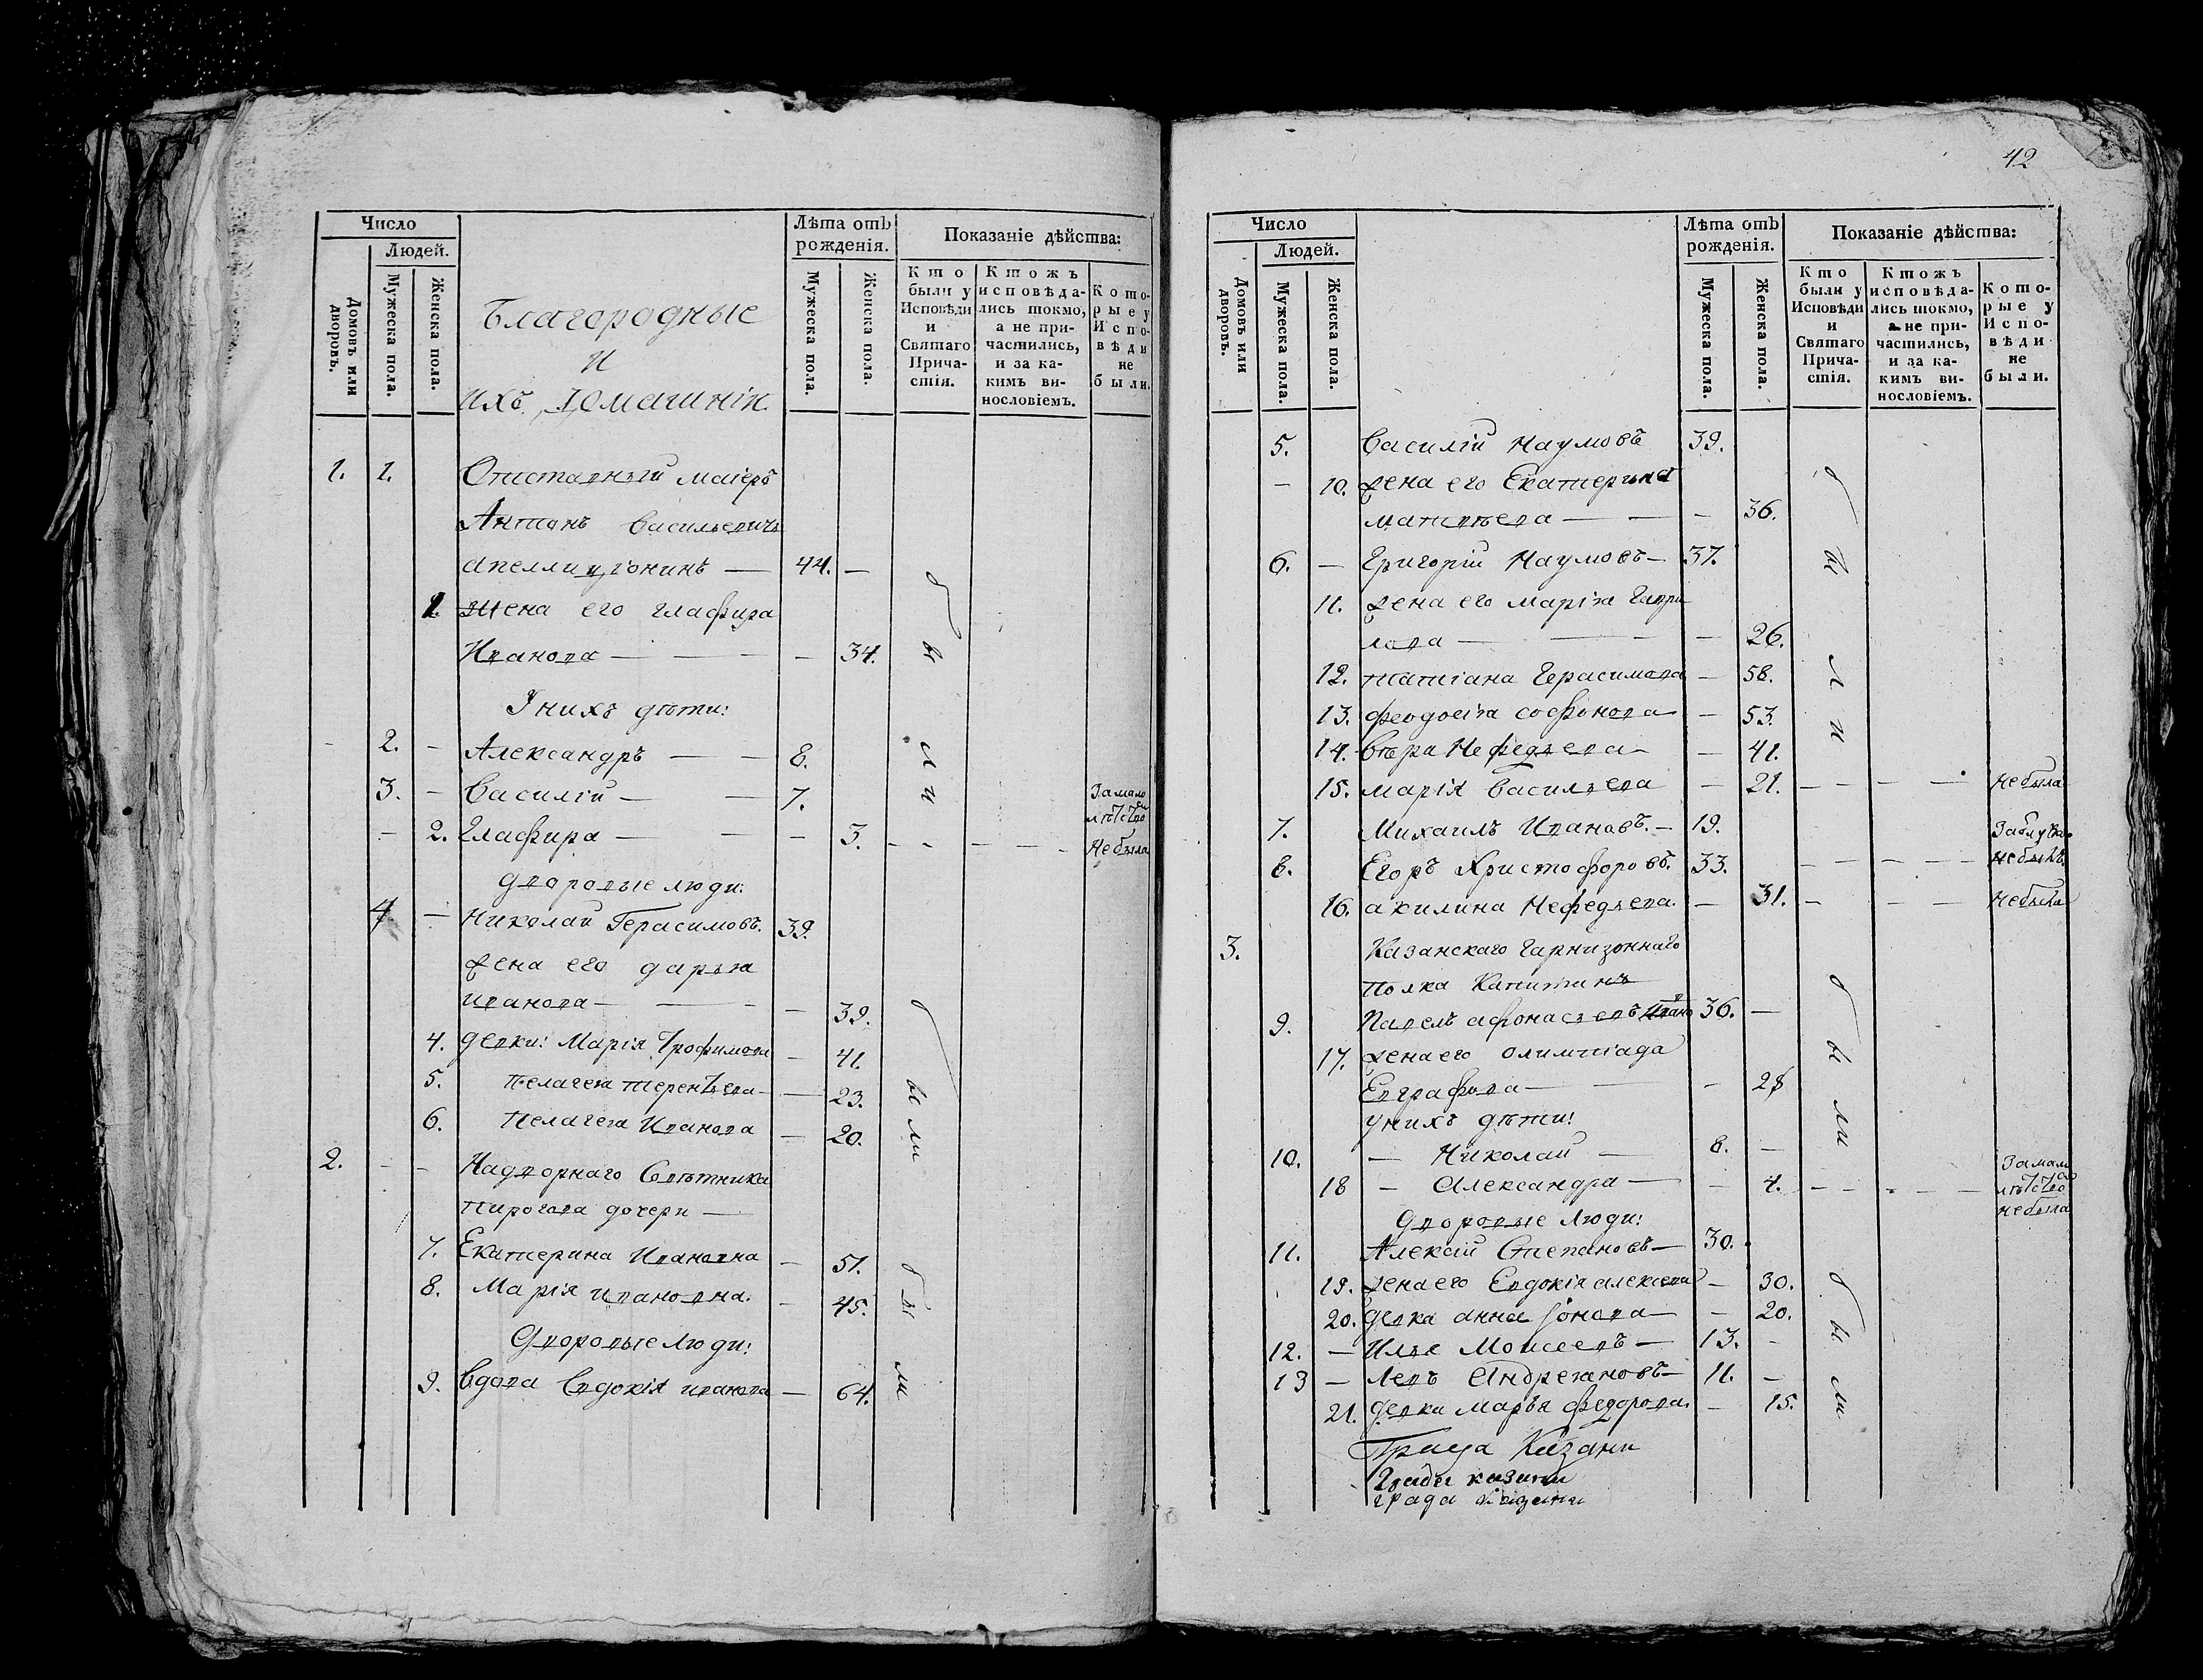 Число
Людей.
Домовъ или дворовъ.
Мужеска пола.
Женска пола.
Благородные
и
ихъ домашнiи.
Лѣта отъ рожденiя.
Мужеска пола.
Женска пола.
Показанiе дѣйства:
Кто были у Исповѣди и Святаго Прича-стiя.
Ктожъ исповѣда-лись токмо, а не при-частились, и за ка-кимъ ви-нословiемъ.
Кото-рые у Испо-вѣди не были.
1. 1. Отставный маiеръ
Антонъ Васильевичъ
апеллицiонинъ — 44. —
1. жена его глафира
Иванова — — — — 34.
У нихъ дѣти:
- 2. - Александръ — — 8.
3. - Василiй — — 7.
- 2. Глафира — — - 3. - - - - -
были
За мало
лѣтство
Не была
дворовые люди:
4 — Николай Герасимовъ. 39.
жена его дарья
иванова — — - - 39.
4. девки: Марiя Трофимова - 41.
5. Пелагея терентьева — 23.
6. Пелагея Иванова — 20.
были
2. - - Надворнаго Совѣтника
Пирогова дочери —
7. Екатерина Ивановна - 51.
8. Марiя ивановна. - 45.
Дворовые люди:
9. Вдова Евдокiя иванова — 64.
были
42
Число
Людей.
Домовъ или дворовъ.
Мужеска пола.
Женска пола.
Лѣта отъ рожденiя.
Мужеска пола.
Женска пола.
Показанiе дѣйства:
Кто были у Исповѣди и Святаго Прича-стiя.
Ктожъ исповѣда-лись токмо, а не при-частились, и за ка-кимъ ви-нословiемъ.
Кото-рые у Испо-вѣди не были.
5. Василiй Наумовъ 39.
- 10. жена его Екатерина
матвѣева — — - 36.
6. — Григорiй Наумовъ — 37.
11. жена его марiя Гаври
лова — — - - 26.
12. татiана Герасимова - 58.
13. феодосiя софонова - 53.
14. Вѣра Нефедьева - — 41.
были
15. марiя Васильева - 21. - - — — Не была
7. Михаилъ Ивановъ. — 19.
8. Егоръ Христофоровъ. 33. - - — — не былъ
16. акилина Нефедьева. — 31. - - — Не была
3. Казанскаго Гарнизоннаго
полка Капитанъ
9. Павелъ афонасьевъ 36. —
17. жена его олимпiада
Евграфова — - 28
у нихъ дѣти:
10. — Николай — 8. -
были
18 - Александра — - 4. - - - - —
За мало
лѣтство
не была
Дворовые люди:
11. Алексей Степановъ — 30.
19. жена его Евдокiя алексева - 30.
20. девка анна Iонова — - 20.
12. — Илье Моисеевъ — 13. -
13 — Левъ Андреяновъ — 11. -
21. девка марья федорова. - 15.
были
Града Казани
Града казани
града казани